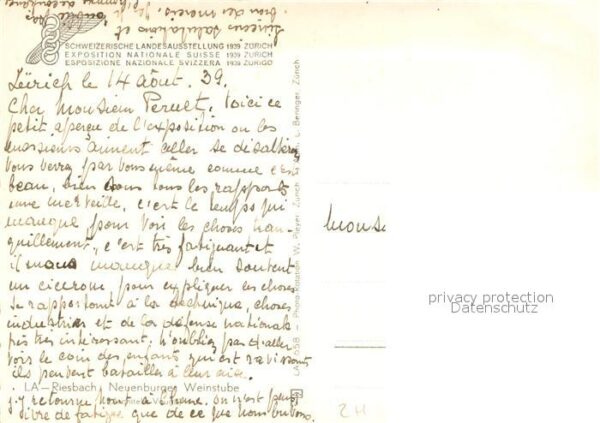 SCHWEIZERISCHE LANDESAUSSTELLUNG 1939 ZÜRICH
EXPOSITION NATIONALE SUISSE 1939 ZURICH
ESPOSIZIONE NAZIONALE SVIZZERA 1939 ZURIGO
Zürich le 14 Août. 39.
Cher Monsieur Perret. Voici ce
petit aperçu de l'exposition ou les
messieurs aiment aller se désaltérer
Vous verrez par vous même comme c'est
beau, bien dans tous les rapports
une merveille, c'est le temps qui
manque pour voir les choses tran-
quillement, c'est très fatiguant et
il manque bien souvent
un cicerone, pour expliquer les choses
se rapportant à la technique, choses
industries et de la défense nationale
très interessant. n'oubliez pas d'aller
voir le coin des enfants qui est ravissant
ils peuvent batailler à leur aise.
LA—Riesbach Neuenburger Weinstube
j'y retourne à
ivre de fatigue que de ce que nous buvons.
sincères salutations et
Mons
privacy protection
Datenschutz